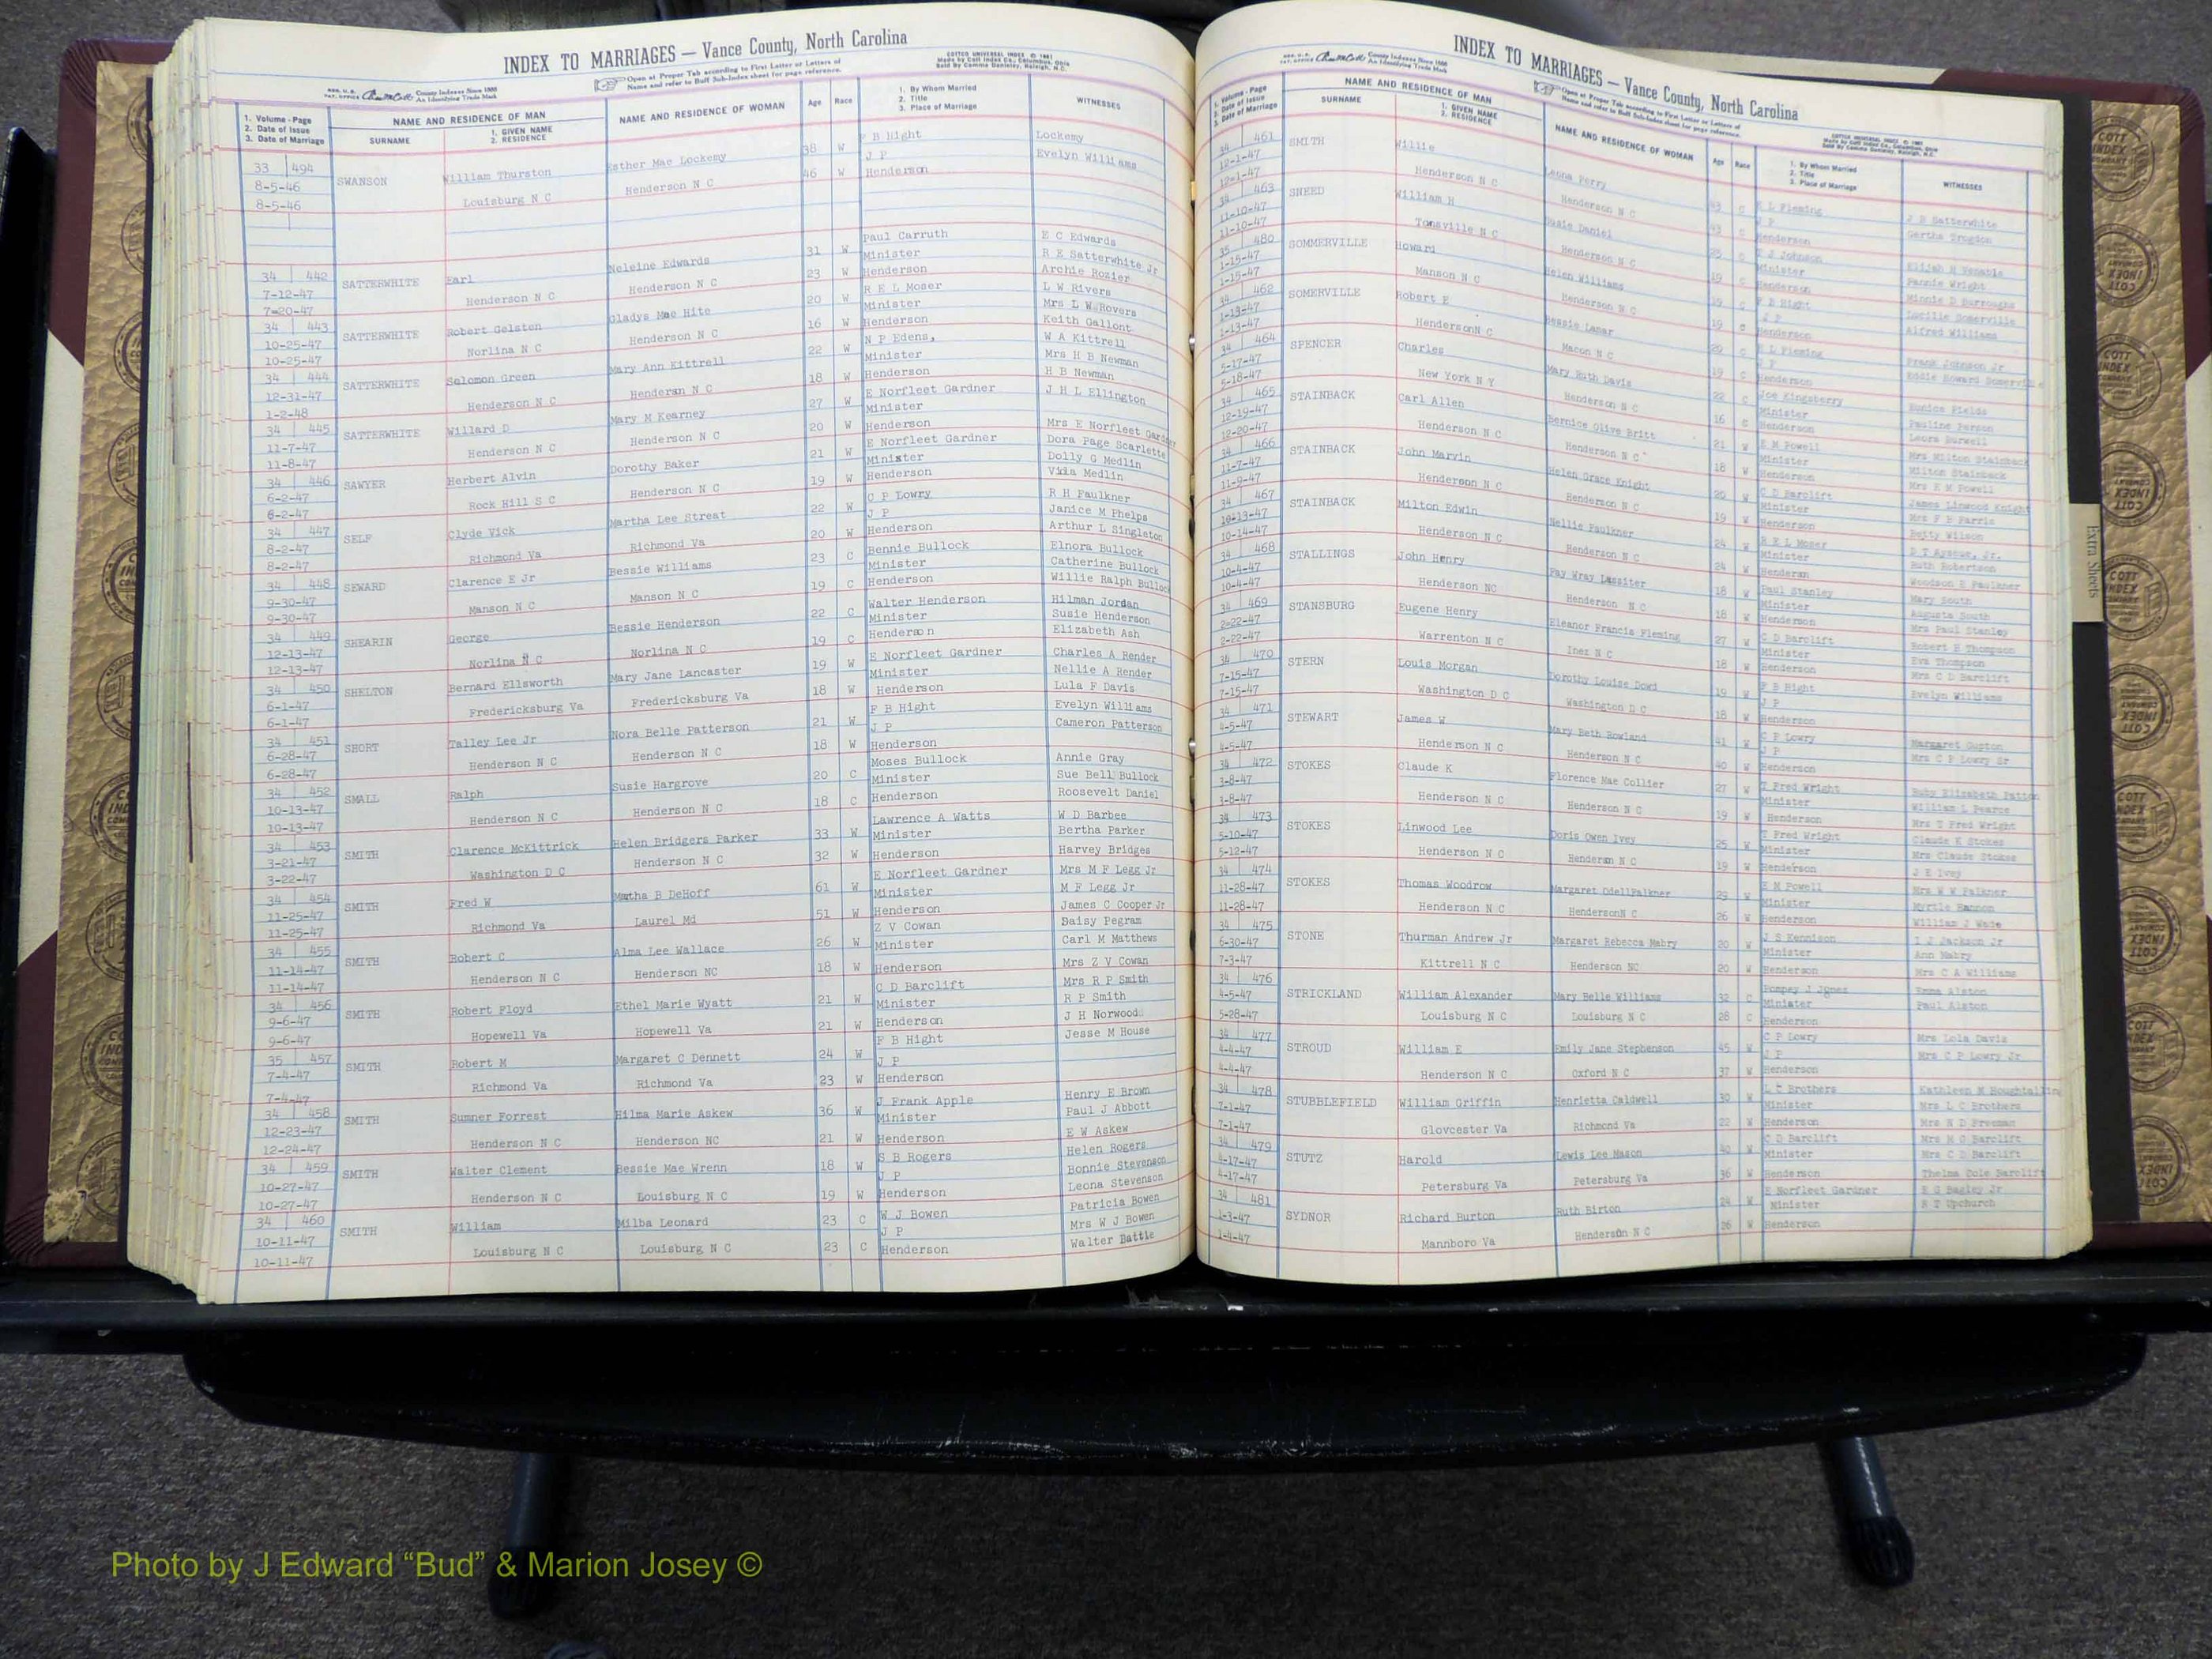 INDEX TO MARRIAGES — Vance County, North Carolina
Open at Proper Tab according to First Letter or Letters of
Name and refer to Buff Sub-Index sheet for page reference.
1. Volume - Page
2. Date of Issue
3. Date of Marriage
NAME AND RESIDENCE OF MAN
SURNAME
1. GIVEN NAME
2. RESIDENCE
NAME AND RESIDENCE OF WOMAN
Age
Race
1. By Whom Married
2. Title
3. Place of Marriage
WITNESSES
33 494 SWANSON William Thurston Esther Mae Lockemy 38 W F B Hight Lockemy
8-5-46 Louisburg N C Henderson N C 46 W J P Evelyn Williams
8-5-46 Henderson
34 442 SATTERWHITE Earl Neleine Edwards 31 W Paul Carruth E C Edwards
7-12-47 Henderson N C Henderson N C 23 W Minister R E Satterwhite Jr
7-20-47 Henderson Archie Rozier
34 443 SATTERWHITE Robert Gelston Gladys Mae Hite 20 W R E L Moser L W Rivers
10-25-47 Norlina N C Henderson N C 16 W Minister Mrs L W Rovers
10-25-47 Henderson Keith Gallont
34 444 SATTERWHITE Solomon Green Mary Ann Kittrell 22 W N P Edens, W A Kittrell
12-31-47 Henderson N C Henderson N C 18 W Minister Mrs H B Newman
1-2-48 Henderson H B Newman
34 445 SATTERWHITE Willard D Mary M Kearney 27 W E Norfleet Gardner J H L Ellington
11-7-47 Henderson N C Henderson N C 20 W Minister
11-8-47 Henderson Mrs E Norfleet Gardner
34 446 SAWYER Herbert Alvin Dorothy Baker 21 W E Norfleet Gardner Dora Page Scarlette
6-2-47 Rock Hill S C Henderson N C 19 W Minister Dolly G Medlin
6-2-47 Henderson Vida Medlin
34 447 SELF Clyde Vick Martha Lee Streat 22 W C P Lowry R H Faulkner
8-2-47 Richmond Va Richmond Va 20 W J P Janice M Phelps
8-2-47 Henderson Arthur L Singleton
34 448 SEWARD Clarence E Jr Bessie Williams 23 C Bennie Bullock Elnora Bullock
9-30-47 Manson N C Manson N C 19 C Minister Catherine Bullock
9-30-47 Henderson Willie Ralph Bullock
34 449 SHEARIN George Bessie Henderson 22 C Walter Henderson Hilman Jordan
12-13-47 Norlina N C Norlina N C 19 C Minister Susie Henderson
12-13-47 Henderson Elizabeth Ash
34 450 SHELTON Bernard Ellsworth Mary Jane Lancaster 19 W E Norfleet Gardner Charles A Render
6-1-47 Fredericksburg Va Fredericksburg Va 18 W Minister Nellie A Render
6-1-47 Henderson Lula F Davis
34 451 SHORT Talley Lee Jr Nora Belle Patterson 21 W F B Hight Evelyn Williams
6-28-47 Henderson N C Henderson N C 18 W J P Cameron Patterson
6-28-47 Henderson
34 452 SMALL Ralph Susie Hargrove 20 C Moses Bullock Annie Gray
10-13-47 Henderson N C Henderson N C 18 C Minister Sue Bell Bullock
10-13-47 Henderson Roosevelt Daniel
34 453 SMITH Clarence McKittrick Helen Bridgers Parker 33 W Lawrence A Watts W D Barbee
3-21-47 Washington D C Henderson N C 32 W Minister Bertha Parker
3-22-47 Henderson Harvey Bridges
34 454 SMITH Fred W Matha B DeHoff 61 W E Norfleet Gardner Mrs M F Legg Jr
11-25-47 Richmond Va Laurel Md 51 W Minister M F Legg Jr
11-25-47 Henderson James C Cooper Jr
34 455 SMITH Robert C Alma Lee Wallace 26 W Z V Cowan Daisy Pegram
11-14-47 Henderson N C Henderson NC 18 W Minister Carl M Matthews
11-14-47 Henderson Mrs Z V Cowan
34 456 SMITH Robert Floyd Ethel Marie Wyatt 21 W C D Barclift Mrs R P Smith
9-6-47 Hopewell Va Hopewell Va 21 W Minister R P Smith
9-6-47 Henderson J H Norwood
35 457 SMITH Robert M Margaret C Dennett 24 W F B Hight Jesse M House
7-4-47 Richmond Va Richmond Va 23 W J P
7-4-47 Henderson
34 458 SMITH Sumner Forrest Hilma Marie Askew 36 W J Frank Apple Henry E Brown
12-23-47 Henderson N C Henderson NC 21 W Minister Paul J Abbott
12-24-47 Henderson E W Askew
34 459 SMITH Walter Clement Bessie Mae Wrenn 18 W S B Rogers Helen Rogers
10-27-47 Henderson N C Louisburg N C 19 W J P Bonnie Stevenson
10-27-47 Henderson Leona Stevenson
34 460 SMITH William Milba Leonard 23 C W J Bowen Patricia Bowen
10-11-47 Louisburg N C Louisburg N C 23 C J P Mrs W J Bowen
10-11-47 Henderson Walter Battle
INDEX TO MARRIAGES — Vance County, North Carolina
Open at Proper Tab according to First Letter or Letters of
Name and refer to Buff Sub-Index sheet for page reference.
1. Volume - Page
2. Date of Issue
3. Date of Marriage
NAME AND RESIDENCE OF MAN
SURNAME
1. GIVEN NAME
2. RESIDENCE
NAME AND RESIDENCE OF WOMAN
Age
Race
1. By Whom Married
2. Title
3. Place of Marriage
WITNESSES
34 461 SMITH Willie Leona Perry 43 C F L Fleming J B Satterwhite
12-1-47 Henderson N C Henderson N C 43 C J P Gertha Trogdon
12-1-47 Henderson
34 463 SNEED William H Susie Daniel 25 C T J Johnson Elijah H Venable
11-10-47 Townsville N C Henderson N C 19 C Minister Fannie Wright
11-10-47 Henderson Minnie D Burroughs
35 480 SOMMERVILLE Howard Helen Williams 19 C F B Hight Lucille Somerville
1-15-47 Manson N C Henderson N C 19 C J P Alfred Williams
1-15-47 Henderson
34 462 SOMERVILLE Robert E Bessie Lamar 20 C F L Fleming Frank Johnson Jr
1-13-47 HendersonN C Macon N C 19 C J P Eddie Howard Somerville
1-13-47 Henderson
34 464 SPENCER Charles Mary Ruth Davis 22 C Joe Kingsberry Eunice Fields
5-17-47 New York N Y Henderson N C 16 C Minister Pauline Person
5-18-47 Henderson Leora Burwell
34 465 STAINBACK Carl Allen Bernice Olive Britt 21 W E M Powell Mrs Milton Stainback
12-19-47 Henderson N C Henderson N C 18 W Minister Milton Stainback
12-20-47 Henderson Mrs E M Powell
34 466 STAINBACK John Marvin Helen Grace Knight 20 W C D Barclift James Linwood Knight
11-7-47 Henderson N C Henderson N C 19 W Minister Mrs F B Parris
11-9-47 Henderson Betty Wilson
34 467 STAINBACK Milton Edwin Nellie Faulkner 24 W R E L Moser D T Ayscue, Jr.
10-13-47 Henderson N C Henderson N C 24 W Minister Ruth Robertson
10-14-47 Henderson Woodson E Faulkner
34 468 STALLINGS John Henry Fay Wray Lassiter 18 W Paul Stanley Mary South
10-4-47 Henderson NC Henderson N C 18 W Minister Augusta South
10-4-47 Henderson Mrs Paul Stanley
34 469 STANSBURG Eugene Henry Eleanor Francis Fleming 27 W C D Barclift Robert H Thompson
2-22-47 Warrenton N C Inez N C 18 W Minister Eva Thompson
2-22-47 Henderson Mrs C D Barclift
34 470 STERN Louis Morgan Dorothy Louise Dowd 19 W F B Hight Evelyn Williams
7-15-47 Washington D C Washington D C 18 W J P
7-15-47 Henderson
34 471 STEWART James W Mary Beth Rowland 41 W C P Lowry Margaret Gupton
4-5-47 Henderson N C Henderson N C 40 W J P Mrs C P Lowry Sr
4-5-47 Henderson
34 472 STOKES Claude K Florence Mae Collier 27 W T Fred Wright Ruby Elizabeth Patton
3-8-47 Henderson N C Henderson N C 19 W Minister William L Pearce
3-8-47 Henderson Mrs T Fred Wright
34 473 STOKES Linwood Lee Doris Owen Ivey 25 W T Fred Wright Claude K Stokes
5-10-47 Henderson N C Henderson N C 19 W Minister Mrs Claude Stokes
5-12-47 Henderson J E Ivey
34 474 STOKES Thomas Woodrow Margaret OdellFalkner 29 W E M Powell Mrs W W Falkner
11-28-47 Henderson N C HendersonN C 26 W Minister Myrtle Hannon
11-28-47 Henderson William J Wade
34 475 STONE Thurman Andrew Jr Margaret Rebecca Mabry 20 W J S Kennison I J Jackson Jr
6-30-47 Kittrell N C Henderson NC 20 W Minister Ann Mabry
7-3-47 Henderson Mrs C A Williams
34 476 STRICKLAND William Alexander Mary Belle Williams 32 C Pompey J Jones Emma Alston
4-5-47 Louisburg N C Louisburg N C 28 C Minister Paul Alston
5-28-47 Henderson
34 477 STROUD William E Emily Jane Stephenson 45 W C P Lowry Mrs Lola Davis
4-4-47 Henderson N C Oxford N C 37 W J P Mrs C P Lowry Jr
4-4-47 Henderson
34 478 STUBBLEFIELD William Griffin Henrietta Caldwell 30 W L C Brothers Kathleen M Houghtalling
7-1-47 Glovcester Va Richmond Va 22 W Minister Mrs L C Brothers
7-1-47 Henderson Mrs N D Freeman
34 479 STUTZ Harold Lewis Lee Mason 40 W C D Barclift Mrs M G Barclift
4-17-47 Petersburg Va Petersburg Va 36 W Minister Mrs C D Barclift
4-17-47 Henderson Thelma Cole Barclift
34 481 SYDNOR Richard Burton Ruth Birton 24 W E Norfleet Gardner E G Bagley Jr
1-3-47 Mannboro Va Henderson N C 26 W Minister R T Upchurch
1-4-47 Henderson
Extra Sheets
Photo by J Edward “Bud” & Marion Josey ©